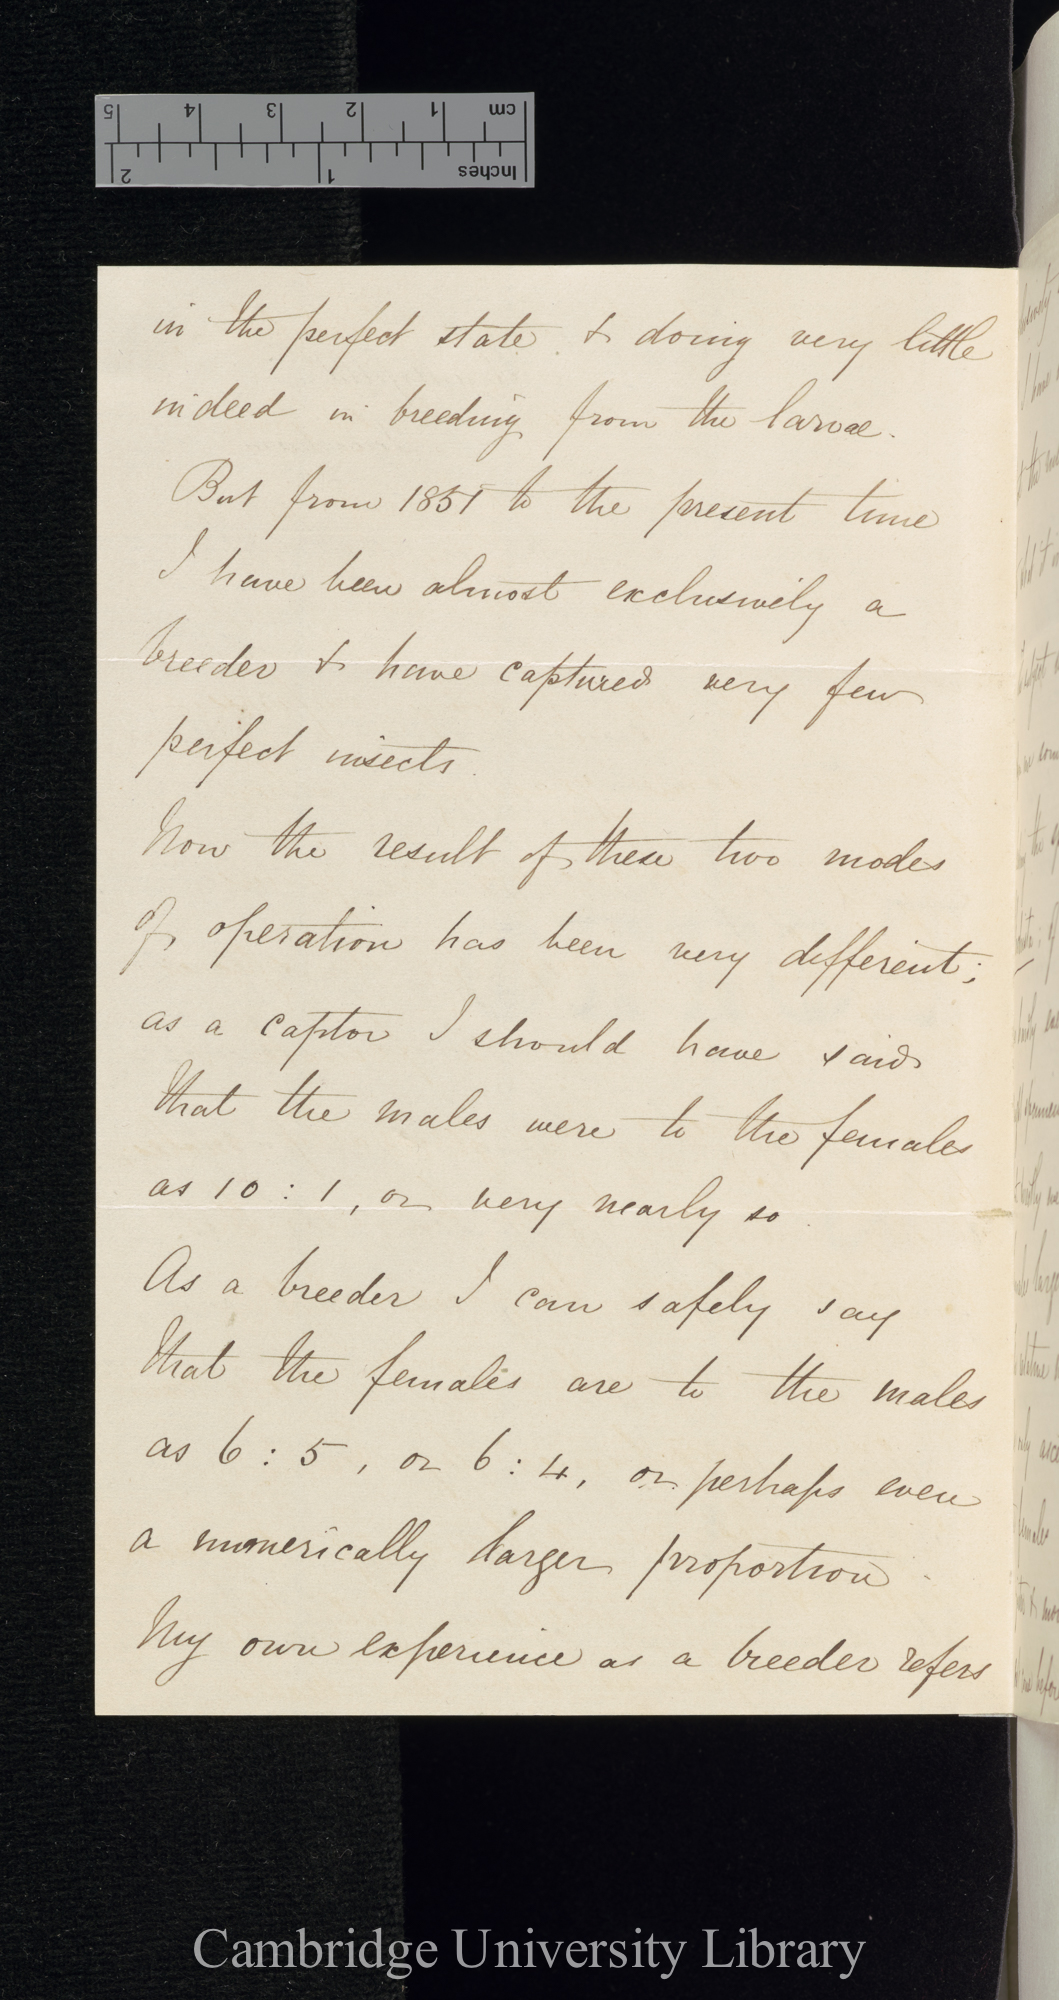 cm 1 2 3 4 5
Inches 1 2
in the perfect state & doing very little
indeed in breeding from the larvae.
But from 1851 to the present time
I have been almost exclusively a
breeder & have captured very few
perfect insects.
Now the result of these two modes
of operation has been very different;
as a captor I should have said
that the males were to the females
as 10 : 1, or very nearly so.
As a breeder I can safely say
that the females are to the males
as 6 : 5, or 6 : 4, or perhaps even
a numerically larger proportion.
My own experience as a breeder refers
Cambridge University Library